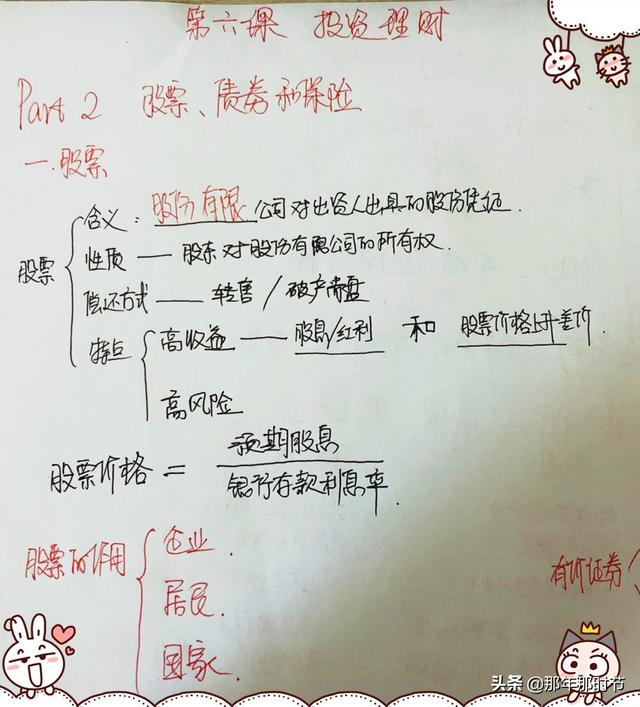 第六课 投资理财
Part 2 股票、债券和保险
一.股票
股票
含义:股份有限公司对出资人出具的股份凭证.
性质——股东对股份有限公司的所有权.
偿还方式——转售/破产清盘
特点
高收益——股息/红利 和 股票价格上升差价.
高风险
股票价格=预期股息
银行存款利息率.
股票的作用
企业.
居民.
国家.
有价证券
头条@那年那时节